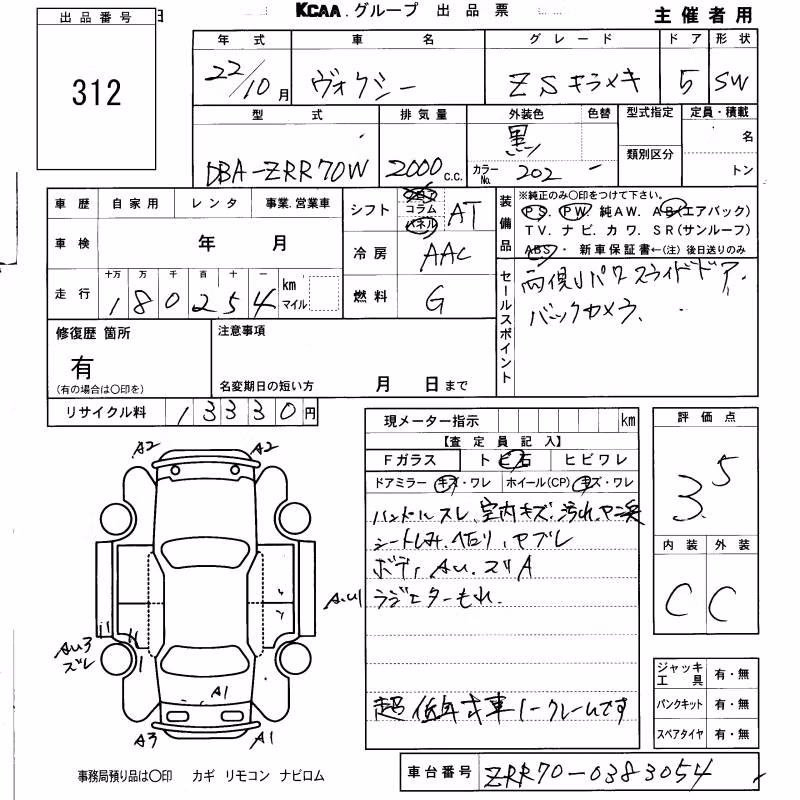 KCAA.グループ 出品票
主催者用
出品番号
312
年式 車名 グレード ドア 形状
22/10月 ヴォクシー ZSキラメキ 5 SW
型式 排気量 外装色 色替 型式指定 定員・積載
DBA-ZRR70W 2000 C.C. 黒 名
カラーNo. 202 - 類別区分 トン
車歴 自家用 レンタ 事業.営業車
シフト コラム パネル AT
装備品 ※純正のみ○印をつけて下さい。
PS. PW. 純AW. AB(エアバック)
TV. ナビ. カワ. SR(サンルーフ)
ABS・ 新車保証書←(注)後日送りのみ
車検 年 月
冷房 AAC
走行 十万 万 千 百 十 一 km マイル
180254
燃料 G
セールスポイント 両側パワスライドドア.
バックカメラ.
修復歴 箇所
有
(有の場合は○印を)
注意事項
名変期日の短い方 月 日まで
リサイクル料 13330円
現メーター指示 km
【査定員記入】
Fガラス トビ石 ヒビワレ
ドアミラー キズ・ワレ ホイール(CP) キズ・ワレ
ハンドルスレ、室内キズ.汚れ.ヤニ臭
シートしみ.ヘタリ、ヤブレ
ボディAU.スリA
ラジエターもれ.
超低年式車ノークレームです
評価点
3.5
内装 外装
C C
ジャッキ 工具 有・無
パンクキット 有・無
スペアタイヤ 有・無
A2 A2
A.U1
AU3
ズレ
A1
A3 A1
事務局預り品は○印 カギ リモコン ナビロム
車台番号 ZRR70-0383054